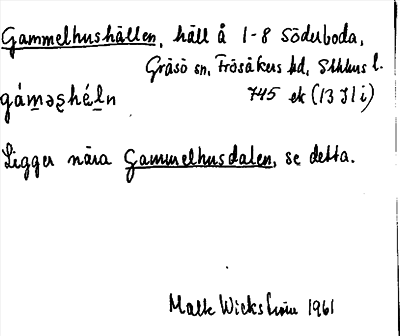 Gammelhushällen, häll å 1-8 Söderboda,
Gräsö sn, Frösåkers hd, Sthlms l.
gámǝʂhéln 745 ek (13 I 1 i)
Ligger nära Gammelhusdalen, se detta.
Malte Wickström 1961